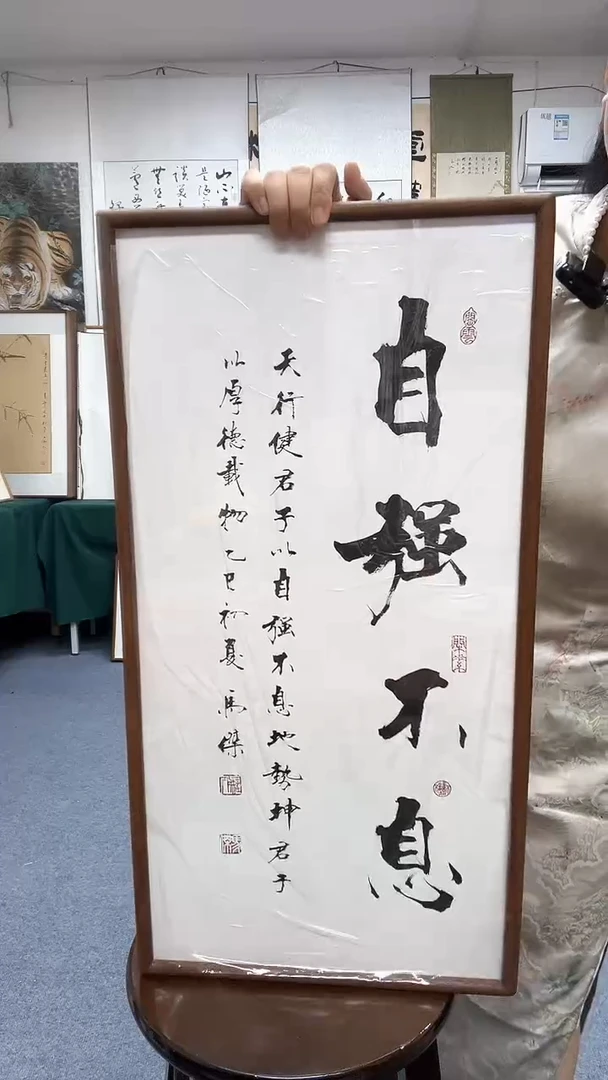 自强不息
天行健君子以自强不息地勢坤君子
以厚德載物乙巳初夏馬傑